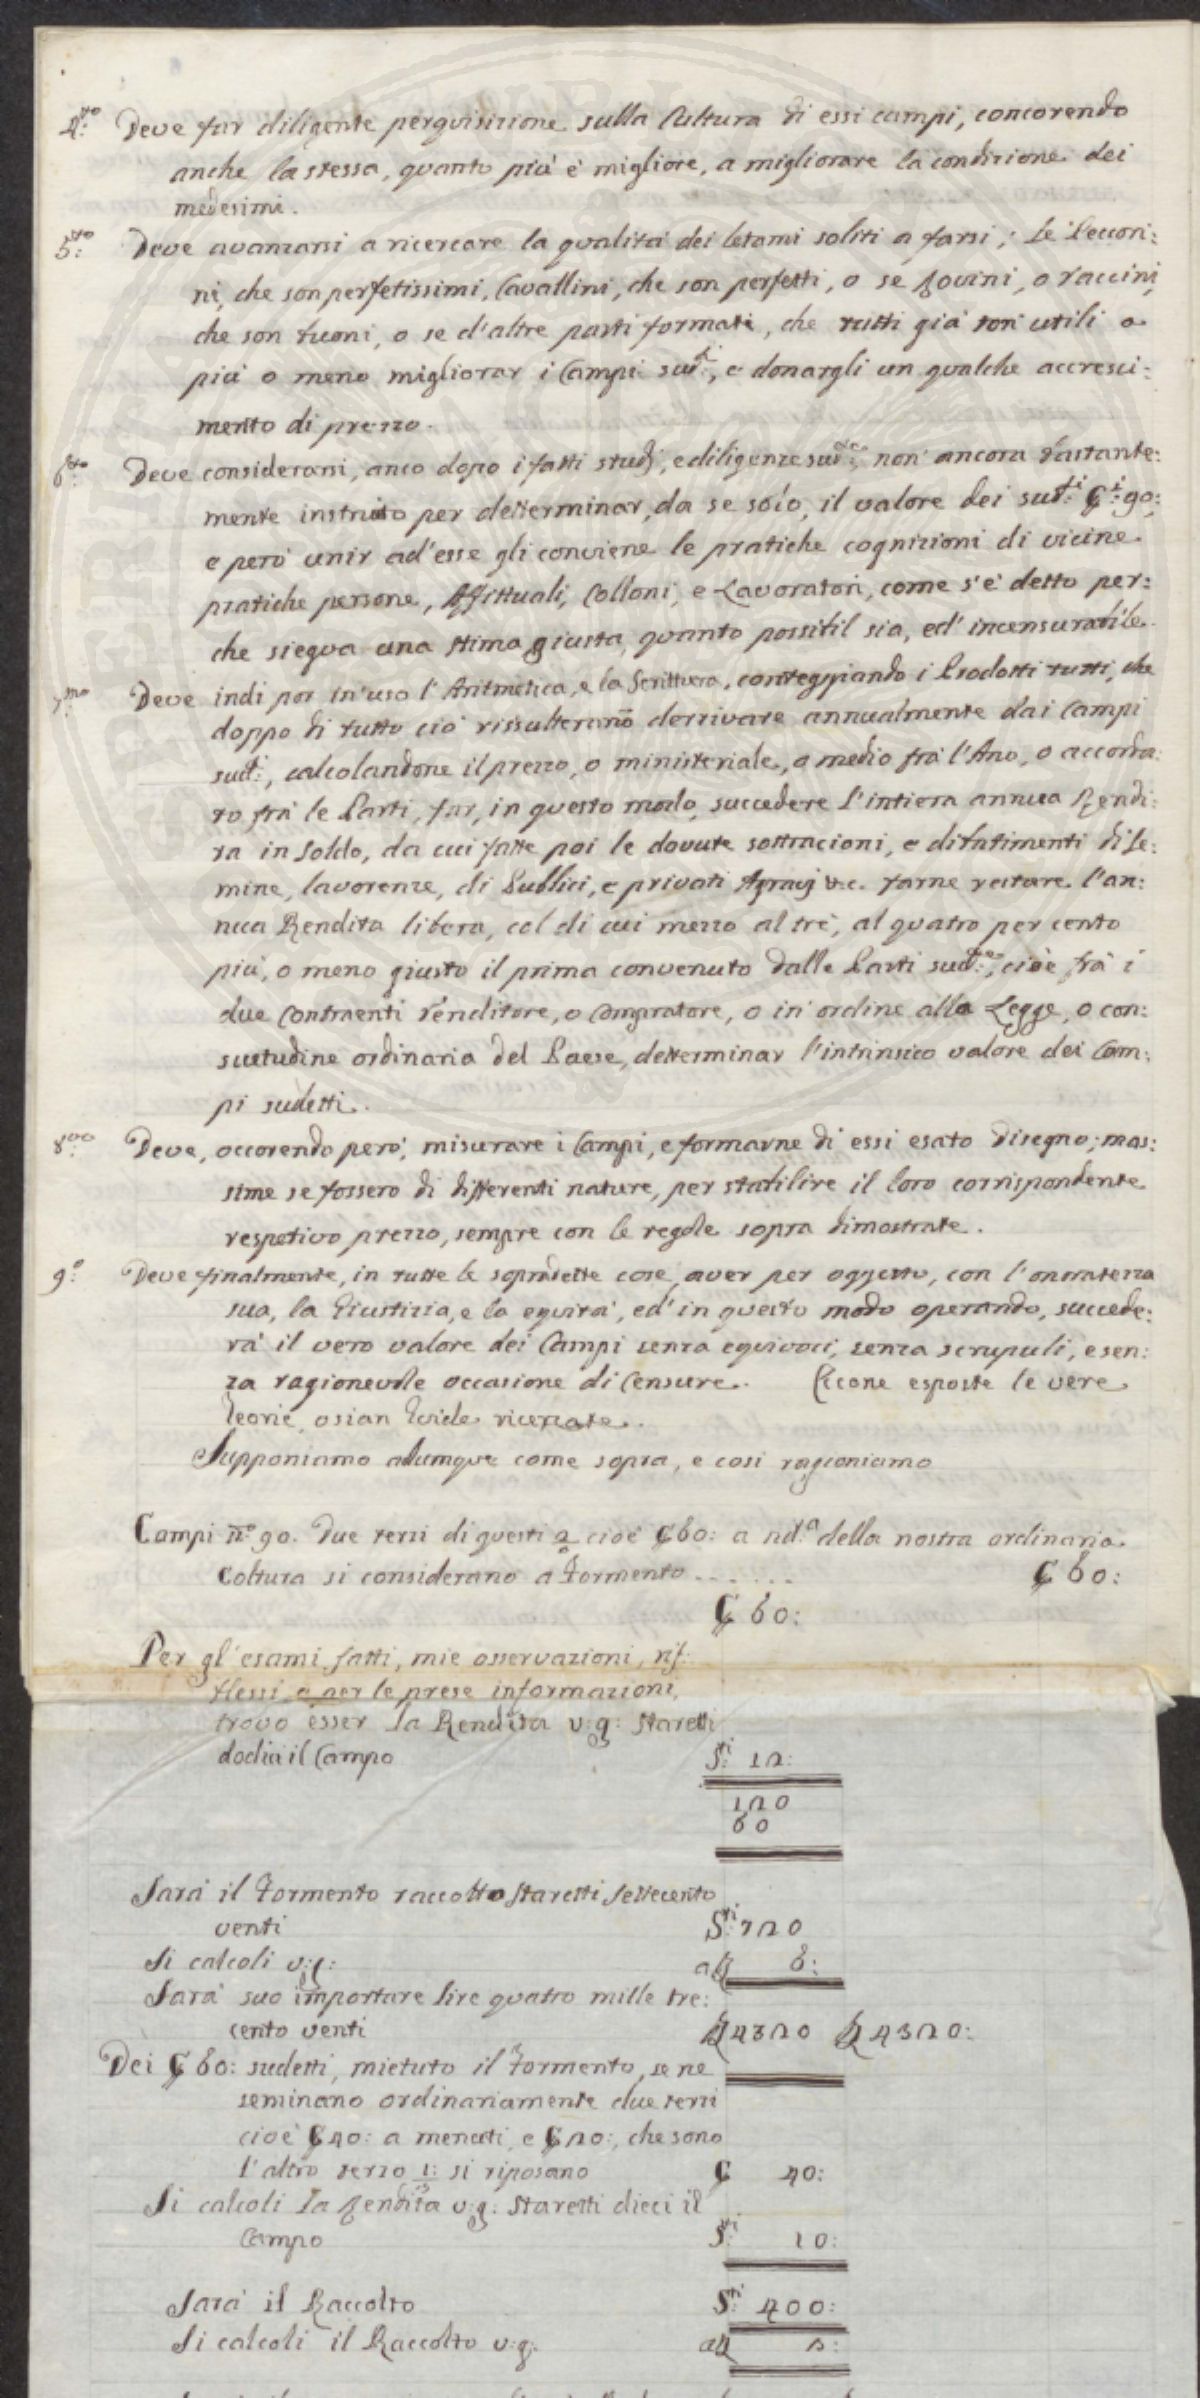 4:to Deve far diligente perquisizione sulla Cultura di essi campi, concorendo
anche la stessa, quanto più è migliore, a migliorare la condizione dei
medesimi.
5:to Deve avanzarsi a ricercare la qualità dei letami soliti a farsi; se Peccori:
ni, che son perfetissimi, Cavallini, che son perfetti, o se Bovini, o Vaccini,
che son buoni, o se d'altre parti formati, che tutti già son utili a
più o meno migliorar i Campi sud:ti, e donargli un qualche accresci:
mento di prezzo.
6:to Deve considerarsi, anco dopo i fatti studj, e diligenze sud:te, non ancora bastante:
mente instruito per determinar, da se solo, il valore dei sud:ti C:i 90:,
e però unir ad'esse gli conviene le pratiche cognizioni di vicine
pratiche persone, Affittuali, Colloni, e Lavoratori, come s'è detto per:
che siegua una stima giusta, quanto possibil sia, ed' incensurabile.
7:mo Deve indi por in'uso l'Aritmetica, e la Scrittura, conteggiando i Prodotti tutti, che
doppo di tutto ciò rissulterano derrivare annualmente dai Campi
sud:ti, calcolandone il prezzo, o ministeriale, o medio frà l'Ano, o accorda:
to frà le Parti, far, in questo modo, succedere l'intiera annua Rendi:
ta in Soldo, da cui fatte poi le dovute sottracioni, e dibatimenti di Se:
mine, lavorenze, di Publici, e privati Agravj &c. farne restare l'an:
nua Rendita libera, col di cui mezzo al trè, al quatro per cento
più, o meno giusto il prima convenuto dalle Parti sud:te, cioè frà i
due Contraenti Venditore, o Compratore, o in ordine alla Legge, o con:
suetudine ordinaria del Paese, determinar l'intrinsico valore dei Cam:
pi sudetti.
8:vo Deve, occorendo però, misurare i Campi, e formarne di essi esato disegno; mas:
sime se fossero di differenti nature, per stabilire il loro corrispondente
respetivo prezzo, sempre con le regole sopra dimostrate.
9:o Deve finalmente, in tutte le sopradette cose, aver per oggetto, con l'onoratezza
sua, la Giustizia, e la equità, ed' in questo modo operando, succede:
rà il vero valore dei Campi senza equivoci, senza scrupuli, e sen:
za ragionevole occasione di Censure. Eccone esposte le vere
Teorie, osian Guide ricercate.
Supponiamo adumque come sopra, e così ragioniamo
Campi n:o 90. Due terzi di questi cioè C 60: a nd:a della nostra ordinaria
Coltura si considerano a Formento...... C 60:
C 60:
Per gl'esami fatti, mie osservazioni, rif:
flessi, e per le prese informazioni,
trovo esser la Rendita v:g: Staretti
dodici il Campo S:ti 12:
120
60
Sarà il Formento raccolto Staretti Settecento
venti S:ti 720
Si calcoli v:g: a £ 6:
Sarà suo importare lire quatro mille tre:
cento venti £ 4320 £ 4320:
Dei C 60: sudetti, mietuto il Formento, se ne
seminano ordinariamente due terzi
cioè C 40: a menuti, e C 20:, che sono
l'altro terzo si riposano C 40:
Si calcoli la Rendita v:g: Staretti dieci il
Campo S:ti 10:
Sarà il Raccolto S:ti 400:
Si calcoli il Raccolto v:g: a £ 2: